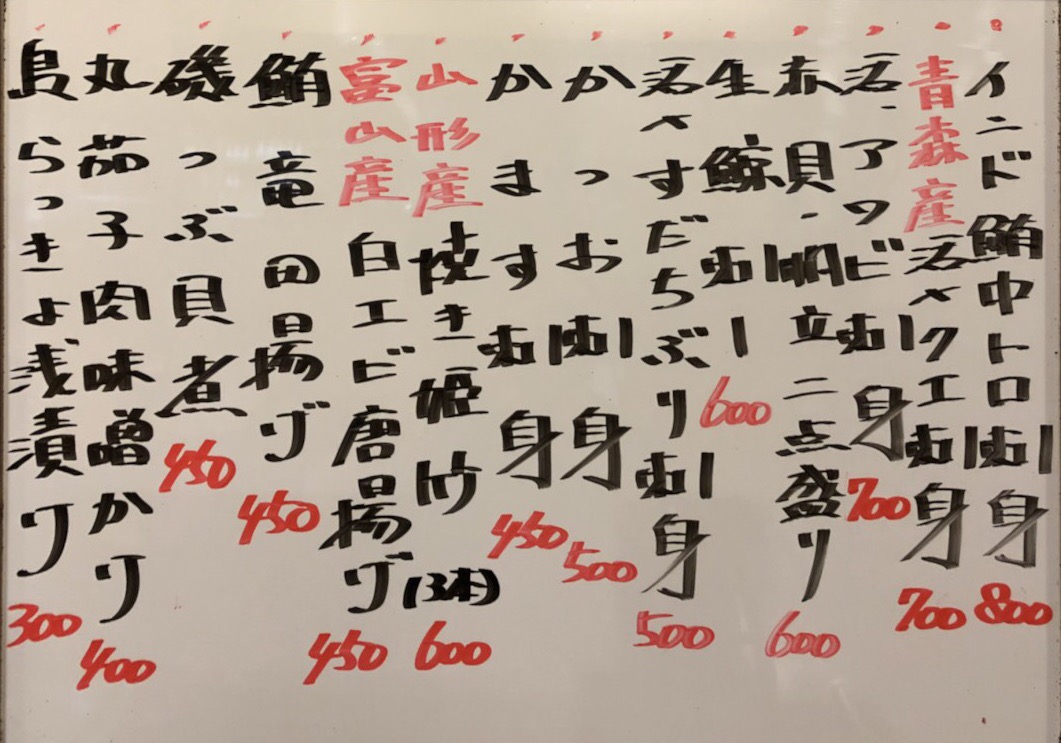 インド鮪中トロ刺身 800
青森産活〆クエ刺身 700
活・アワビ刺身 700
赤貝・帆立二点盛り 600
生鯨刺 600
活〆すだちぶり刺身 500
かつお刺身 500
かます刺身 450
山形産焼き姫竹(3本) 600
富山産白エビ唐揚げ 450
鮪竜田揚げ 450
磯つぶ貝煮 450
丸茄子肉味噌かけ 400
島らっきょ浅漬け 300